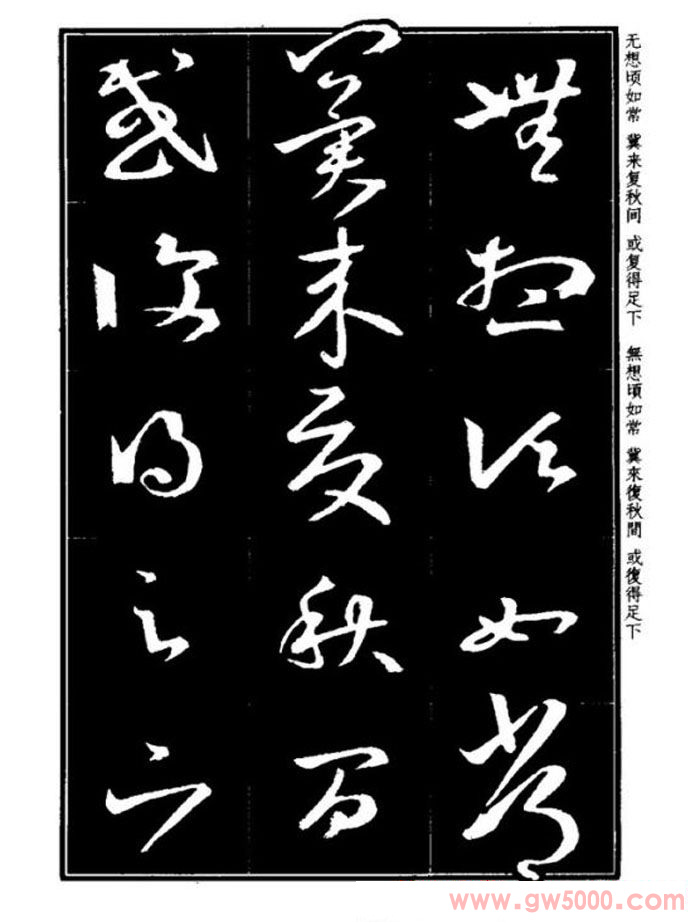 无想顷如常 冀来复秋间 或复得足下 無想頃如常 冀來復秋間 或復得足下
無想頃如常
冀來復秋間
或復得足下
www.gw5000.com